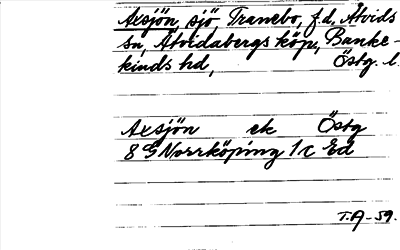 Axsjön, sjö Tranebo, f.d. Åtvids
sn, Åtvidabergs köp., Banke-
kinds hd, Östg. l.
Axsjön ek Östg
8 G Norrköping 1 c Ed
T.A-59.